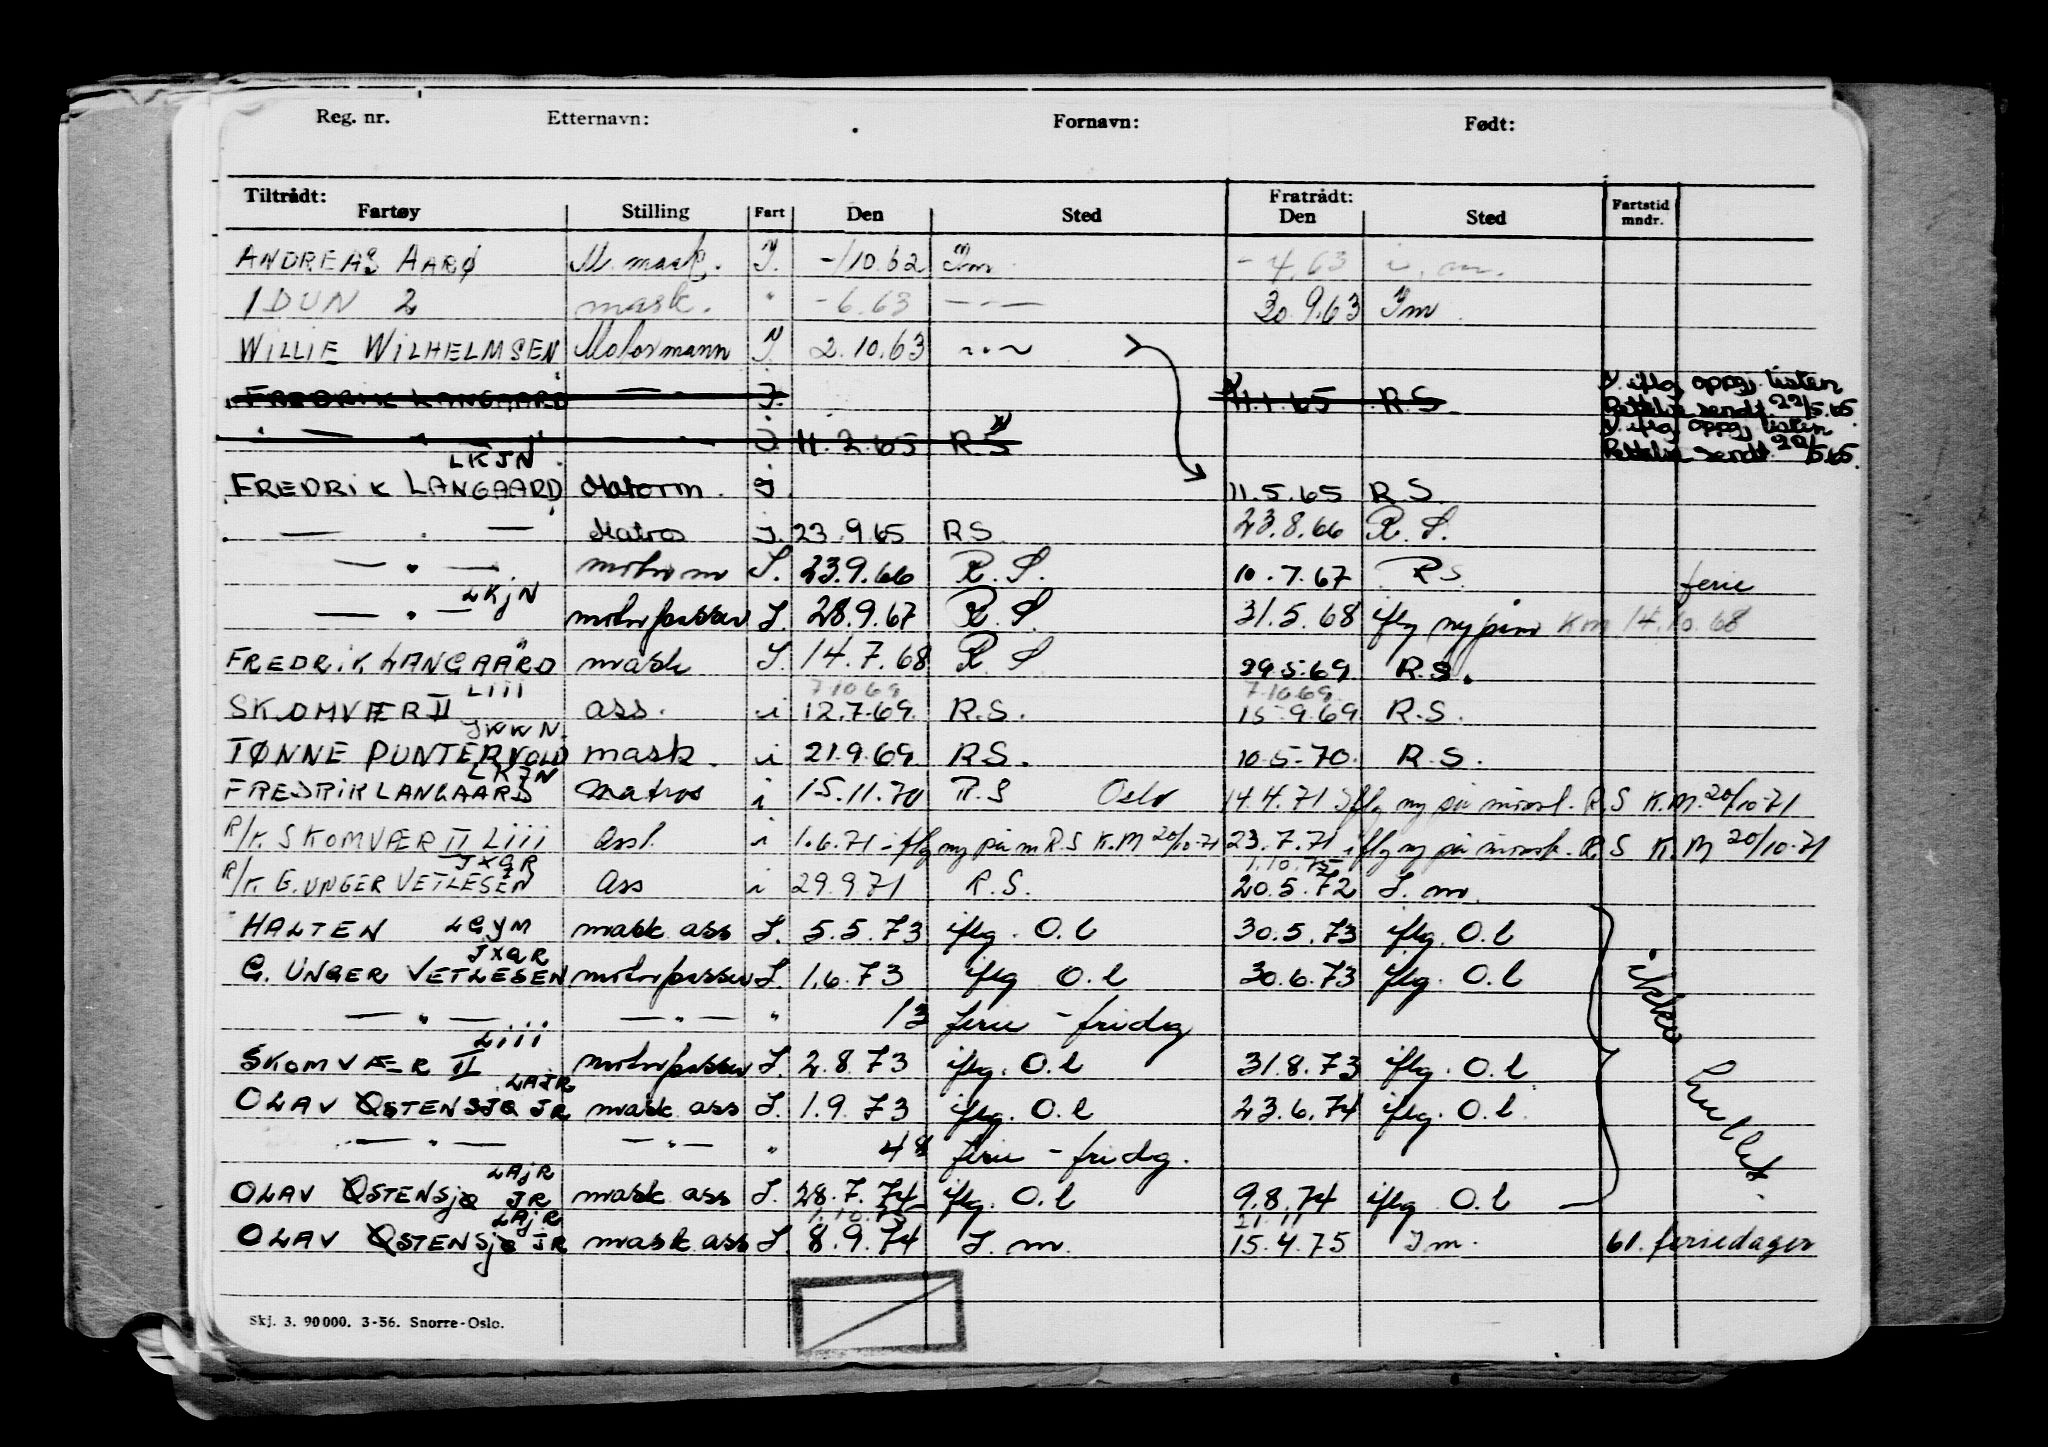 Reg. nr. Etternavn: Fornavn: Født:
Tiltrådt: Fratrådt:
Fartøy Stilling Fart Den Sted Den Sted Fartstid mndr.
ANDREAS AARØ M. mask. I. -/10.62 Im -4.63 i. m.
IDUN 2 mask. " -6.63 — " — 30.9.63 Im
WILLIE WILHELMSEN Motormann I. 2.10.63 — " —
FREDRIK LANGAARD — " — I. x) 11.1.65 R.S. x) iflg oppgj. listen
Rettelse sendt 22/5.65
— " — — " — I. 11.2.65 R.S x) x) iflg oppgj. listen
Rettelse sendt 22/5.65.
LKJN
FREDRIK LANGAARD Motorm. I 11.5.65 R.S.
— " — Matros I. 23.9.65 R.S. 23.8.66 R.S.
— " — motorm I. 23.9.66 R.S. 10.7.67 R.S. ferie
LKJN
— " — motorpasser I. 28.9.67 R.S. 31.5.68 iflg ny påm KM 14.10.68
FREDRIK LANGAARD mask I. 14.7.68 R.S 29.5.69 R.S.
Liii 7.10.69 7.10.69.
SKOMVÆR II ass. i 12.7.69. R.S. 15.9.69 R.S.
JWWN.
TØNNE PUNTERVOLD mask. i 21.9.69 R.S. 10.5.70. R.S.
LKJN
FREDRIK LANGAARD Matros i 15.11.70 R.S Oslo 14.4.71 iflg ny på mønst. R.S K.M. 20/10-71
R/K. SKOMVÆR II Liii Ass. i 1.6.71 - iflg ny på m R.S K.M 20/10-71 23.7.71 iflg ny på mønst. R.S K.M 20/10-71
JXQR 1.10.75
R/K. G. UNGER VETLESEN Ass i 29.9.71 R.S. 20.5.72 I. m.
HALTEN LGYM mask ass I. 5.5.73 iflg. O.l 30.5.73 iflg. O.l
JXQR
G. UNGER VETLESEN motorpasser I. 1.6.73 iflg O.l 30.6.73 iflg. O.l ikke
— " — — " — " 13 ferie - fridag
Liii
SKOMVÆR II motorpasser I. 2.8.73 iflg. O.l 31.8.73 iflg. O.l
LAJR
OLAV ØSTENSJØ JR mask ass I. 1.9.73 iflg. O.l 23.6.74 iflg. O.l
— " — — " — " 48 ferie - fridag.
LAJR
OLAV ØSTENSJØ JR mask ass I. 28.7.74 iflg. O.l 9.8.74 iflg O.l
LAJR 1.10.75 21.11
OLAV ØSTENSJØ JR mask ass I. 8.9.74 I. m. 15.4.75 I m. 61. feriedager
Skj. 3. 90 000. 3-56. Snorre-Oslo.